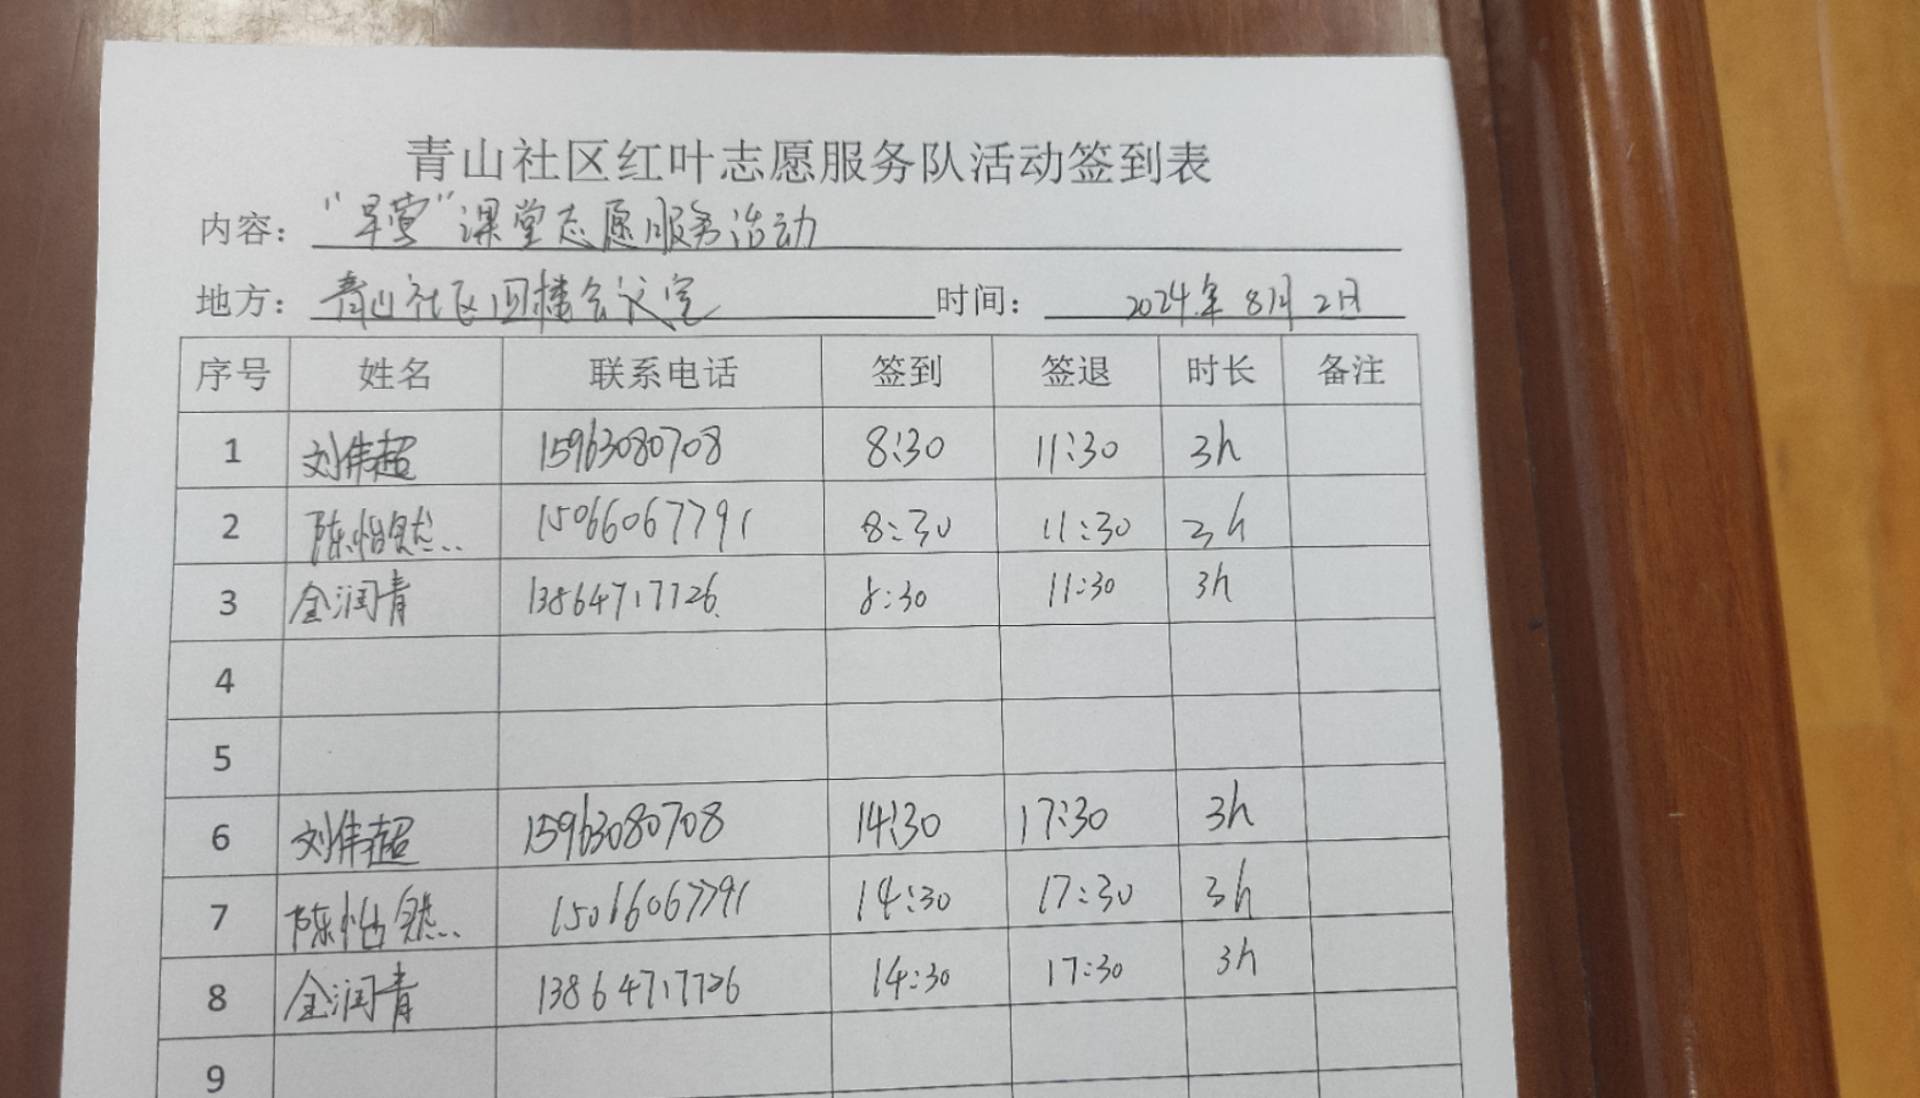 青山社区红叶志愿服务队活动签到表
内容： “早莺”课堂志愿服务活动
地方： 青山社区四楼会议室 时间： 2024年8月2日
序号 姓名 联系电话 签到 签退 时长 备注
1 刘伟超 15963080708 8:30 11:30 3h
2 陈怡然 15066067791 8:30 11:30 3h
3 金润青 13864717726 8:30 11:30 3h
4
5
6 刘伟超 15963080708 14:30 17:30 3h
7 陈怡然 15066067791 14:30 17:30 3h
8 金润青 13864717726 14:30 17:30 3h
9